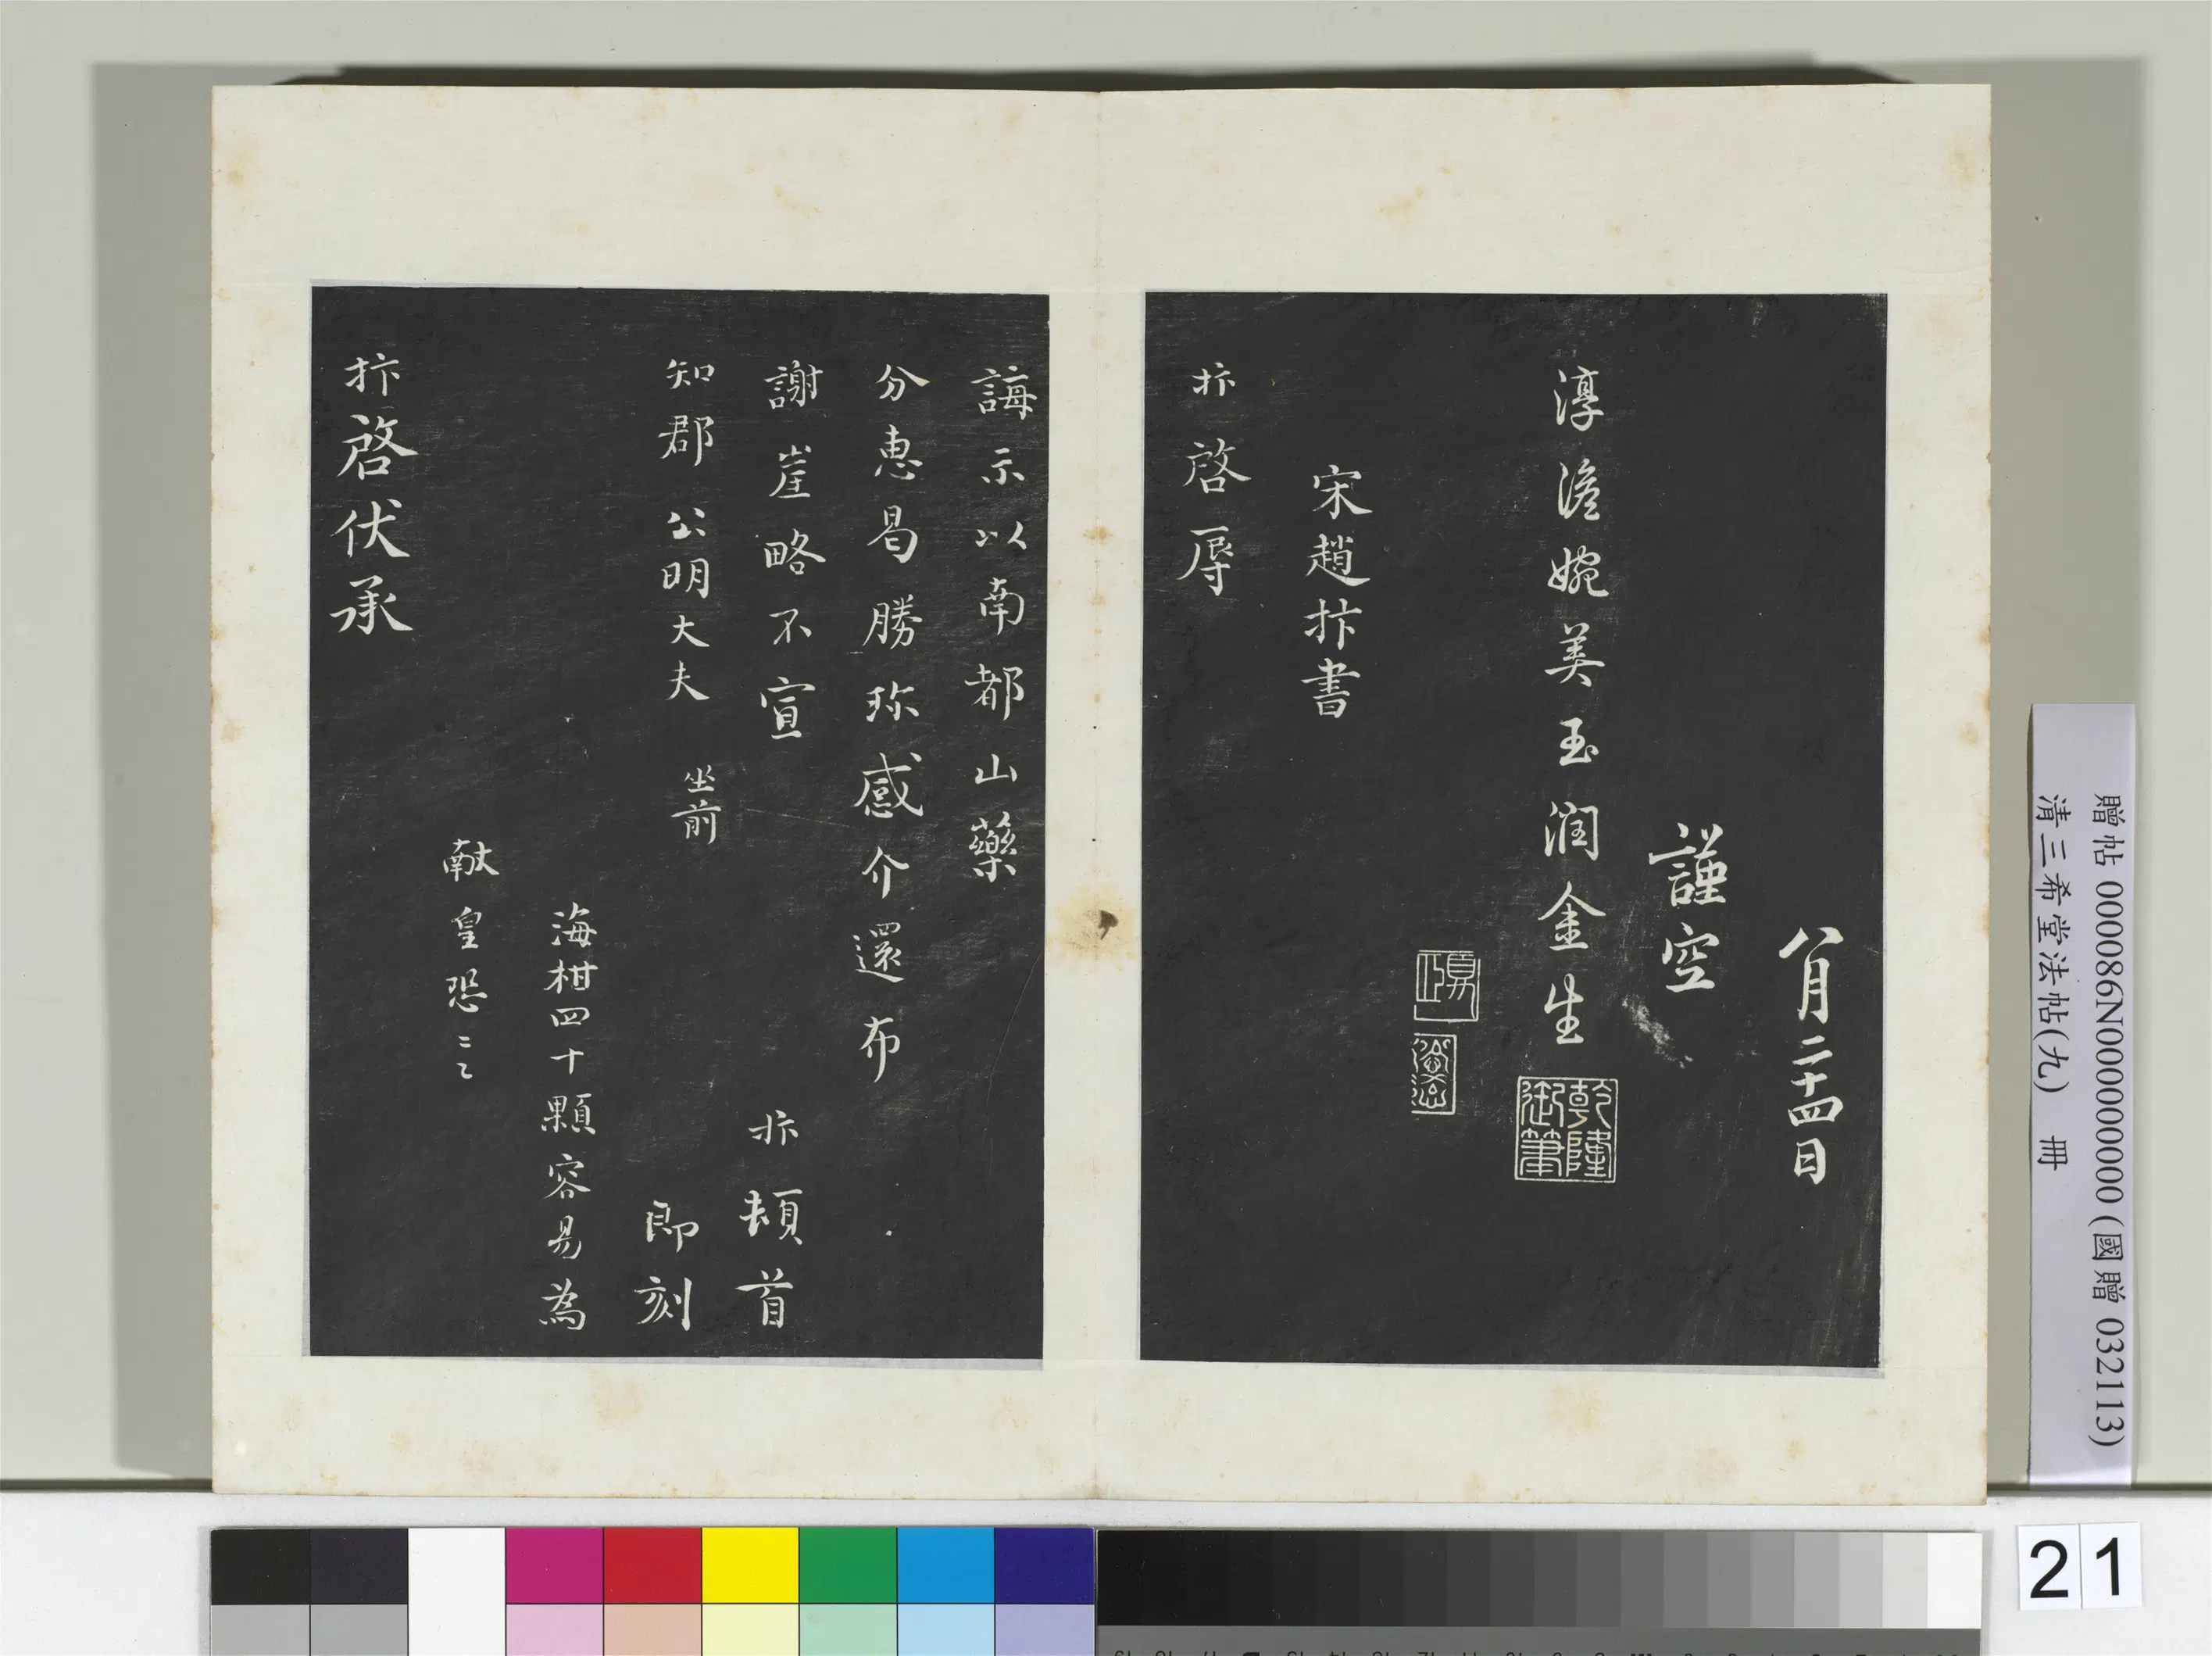 八月二十四日
謹空
淳澹婉美玉润金生
乾隆御筆
宋趙抃書
抃啓辱
誨示以南都山藥
分惠曷勝珎感介還布
謝崖略不宣 抃頓首
知郡公明大夫 坐前 即刻
海柑四十顆容易為
献皇恐〻〻
抃啓伏承
贈帖 000086N000000000 (國贈 032113)
清三希堂法帖(九) 冊
21